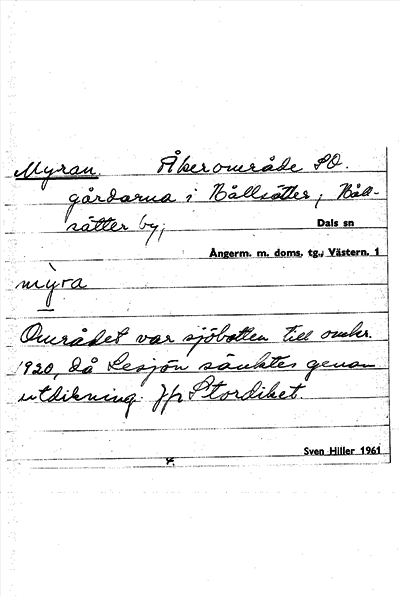 Myran. Åkerområde SO.
gårdarna i Bållsätter, Båll-
sätter by,
Dals sn
Ångerm. m. doms. tg., Västern. 1
myra
Området var sjöbotten till omkr.
1920, då Lesjön sänktes genom
utdikning. Jfr Stordiket.
Sven Hiller 1961
4.